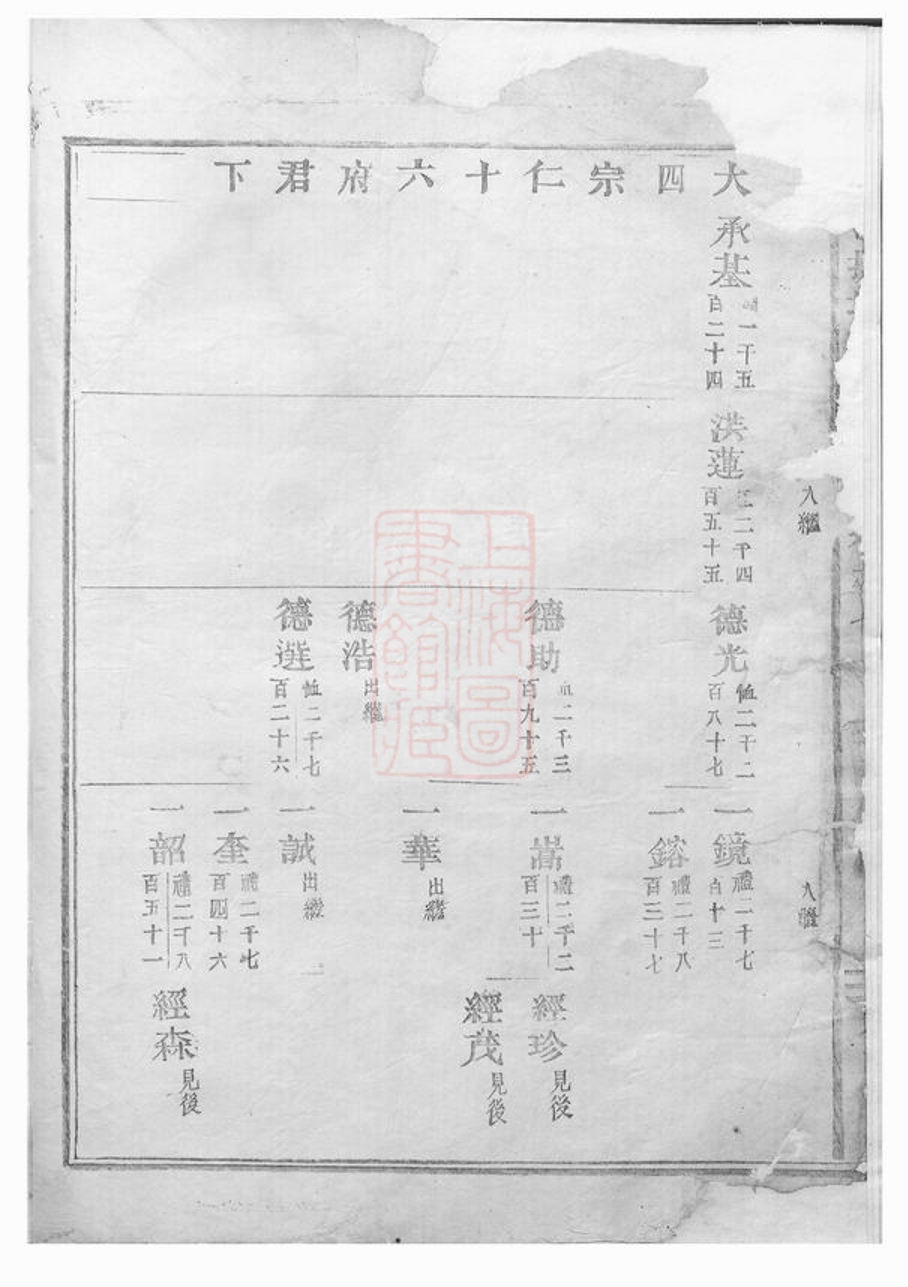 大四宗仁十六府君下
承基
一千五
百二十四
洪蓮
二千四
百五十五
德光
恤二千二
百八十七
德助
二千三
百九十五
德浩
出繼
德選
恤二千七
百二十六
一鏡
禮二千七
百十三
一鎔
禮二千八
百三十七
一嵩
禮二千二
百三十
一華
出繼
一誠
出繼
一奎
禮二千七
百四十六
一韶
禮二千八
百五十一
經珍
見後
經茂
見後
經森
見後
入繼
入繼
上海圖書館藏